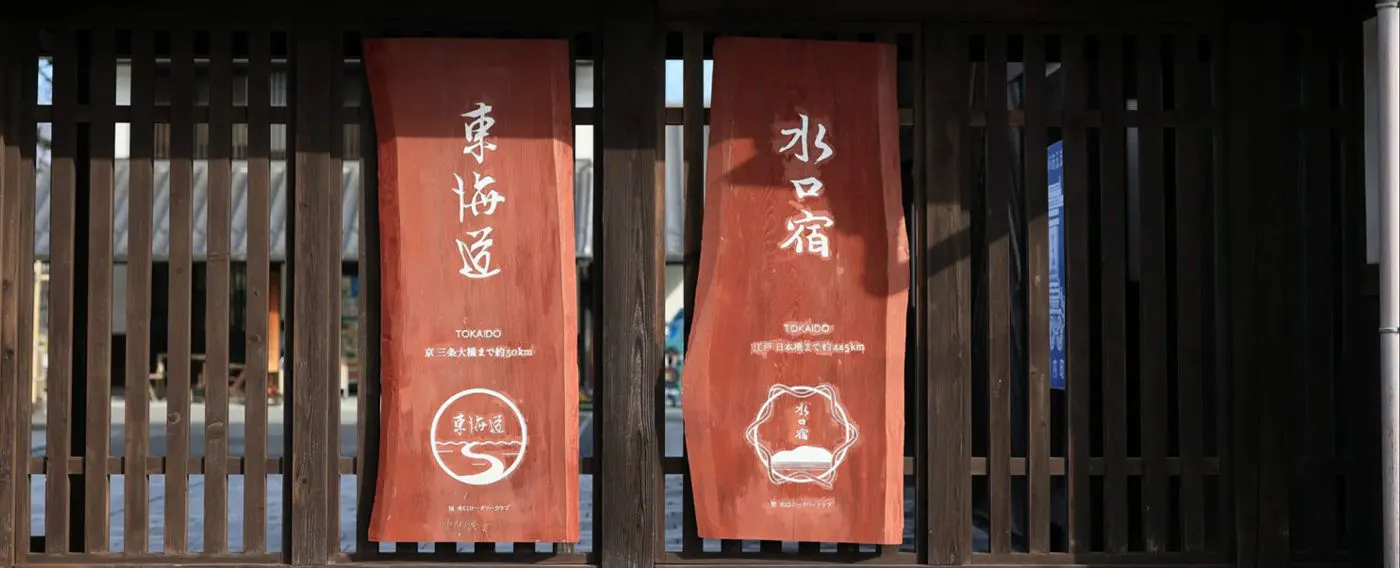 東海道
TOKAIDO
京 三条大橋まで約50km
東海道
水口宿
TOKAIDO
江戸 日本橋まで約445km
水口宿
水口ロータリークラブ